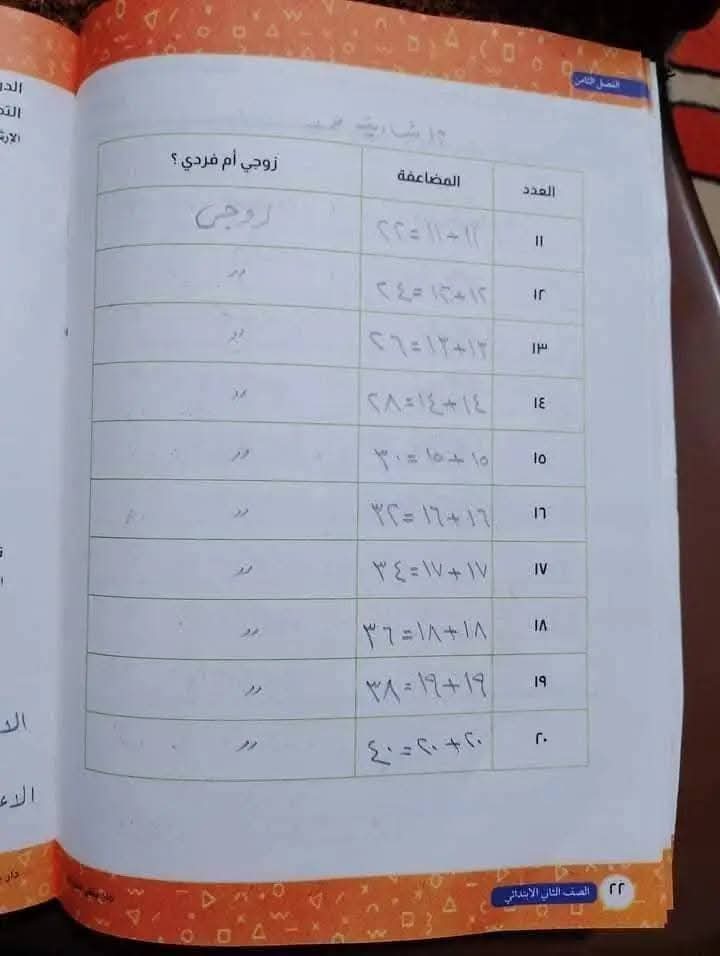 الفصل الثامن
العدد المضاعفة زوجي أم فردي ؟
١١ ١١+١١=٢٢ زوجى
١٢ ١٢+١٢=٢٤ 〃
١٣ ١٣+١٣=٢٦ 〃
١٤ ١٤+١٤=٢٨ 〃
١٥ ١٥+١٥=٣٠ 〃
١٦ ١٦+١٦=٣٢ 〃
١٧ ١٧+١٧=٣٤ 〃
١٨ ١٨+١٨=٣٦ 〃
١٩ ١٩+١٩=٣٨ 〃
٢٠ ٢٠+٢٠=٤٠ 〃
٢٢ الصف الثاني الابتدائي